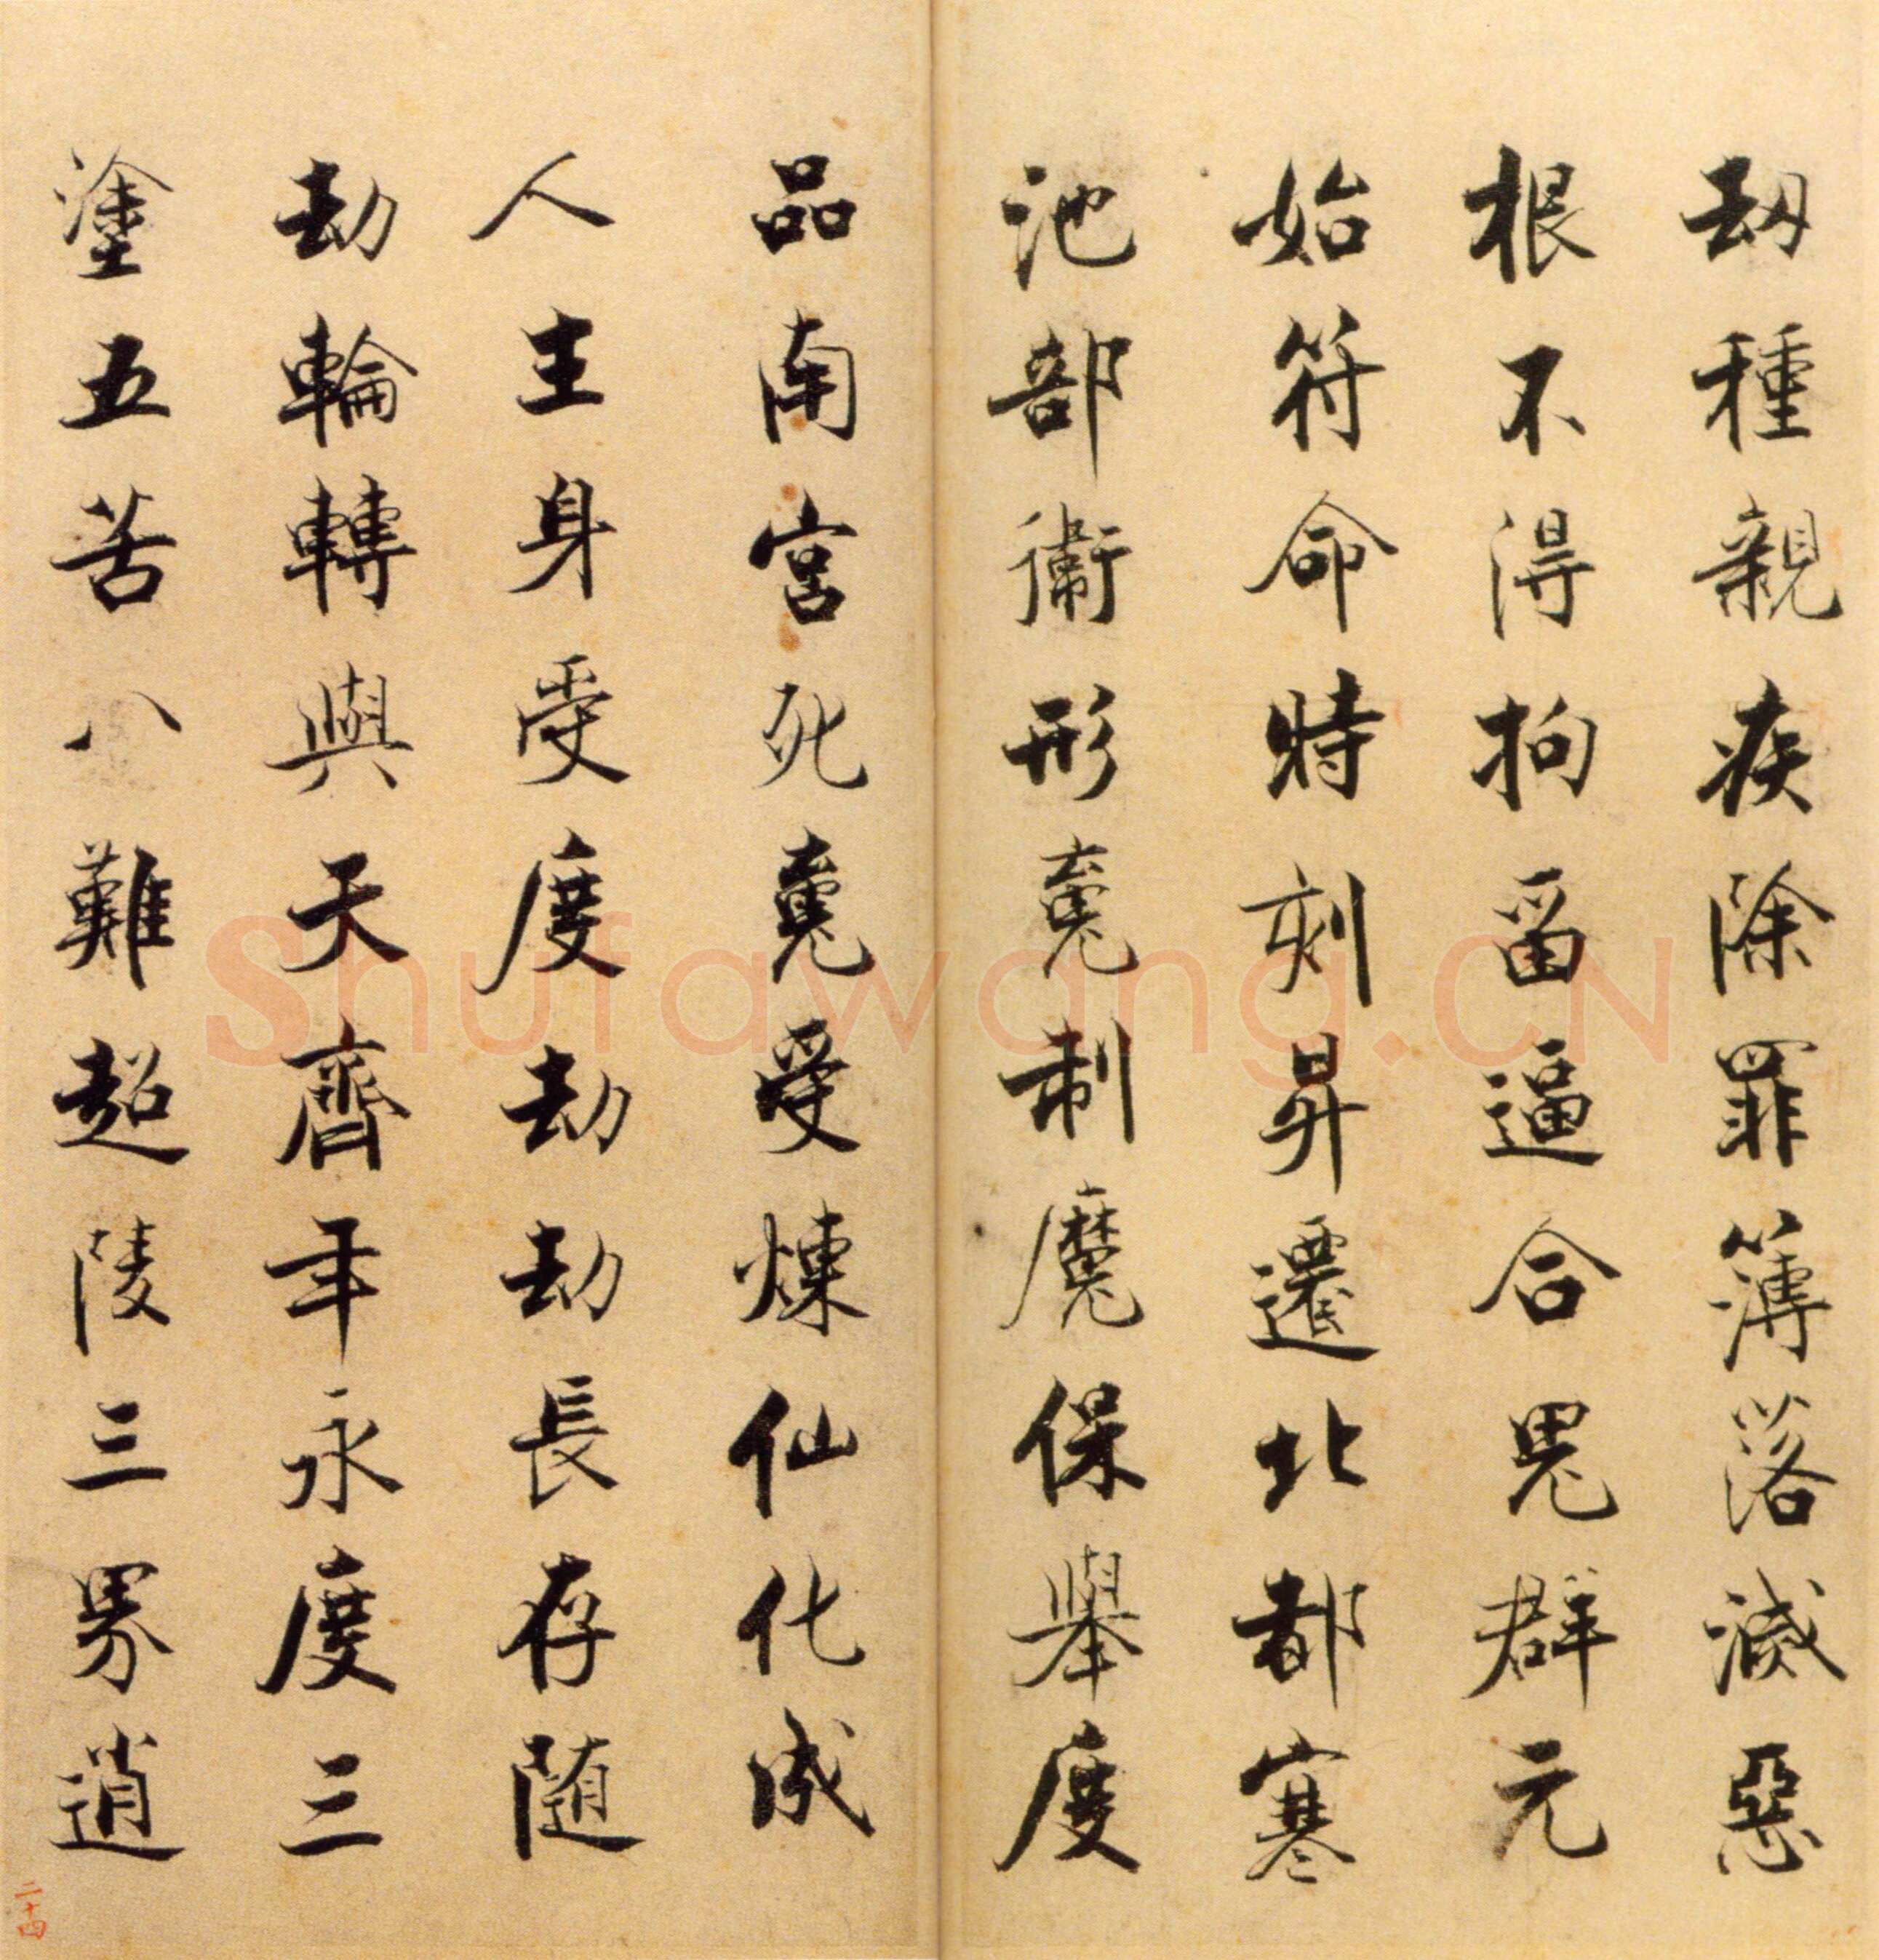 刧種親疾除罪簿落滅惡
根不得拘留逼合鬼群元
始符命時刻昇遷北都寒
池部衛形䰟制魔保舉度
品南宮死䰟受煉仙化成
人生身受度劫劫長存随
劫輪轉與天齊年永度三
塗五苦八難超陵三界逍
二十四
Shufawang.CN